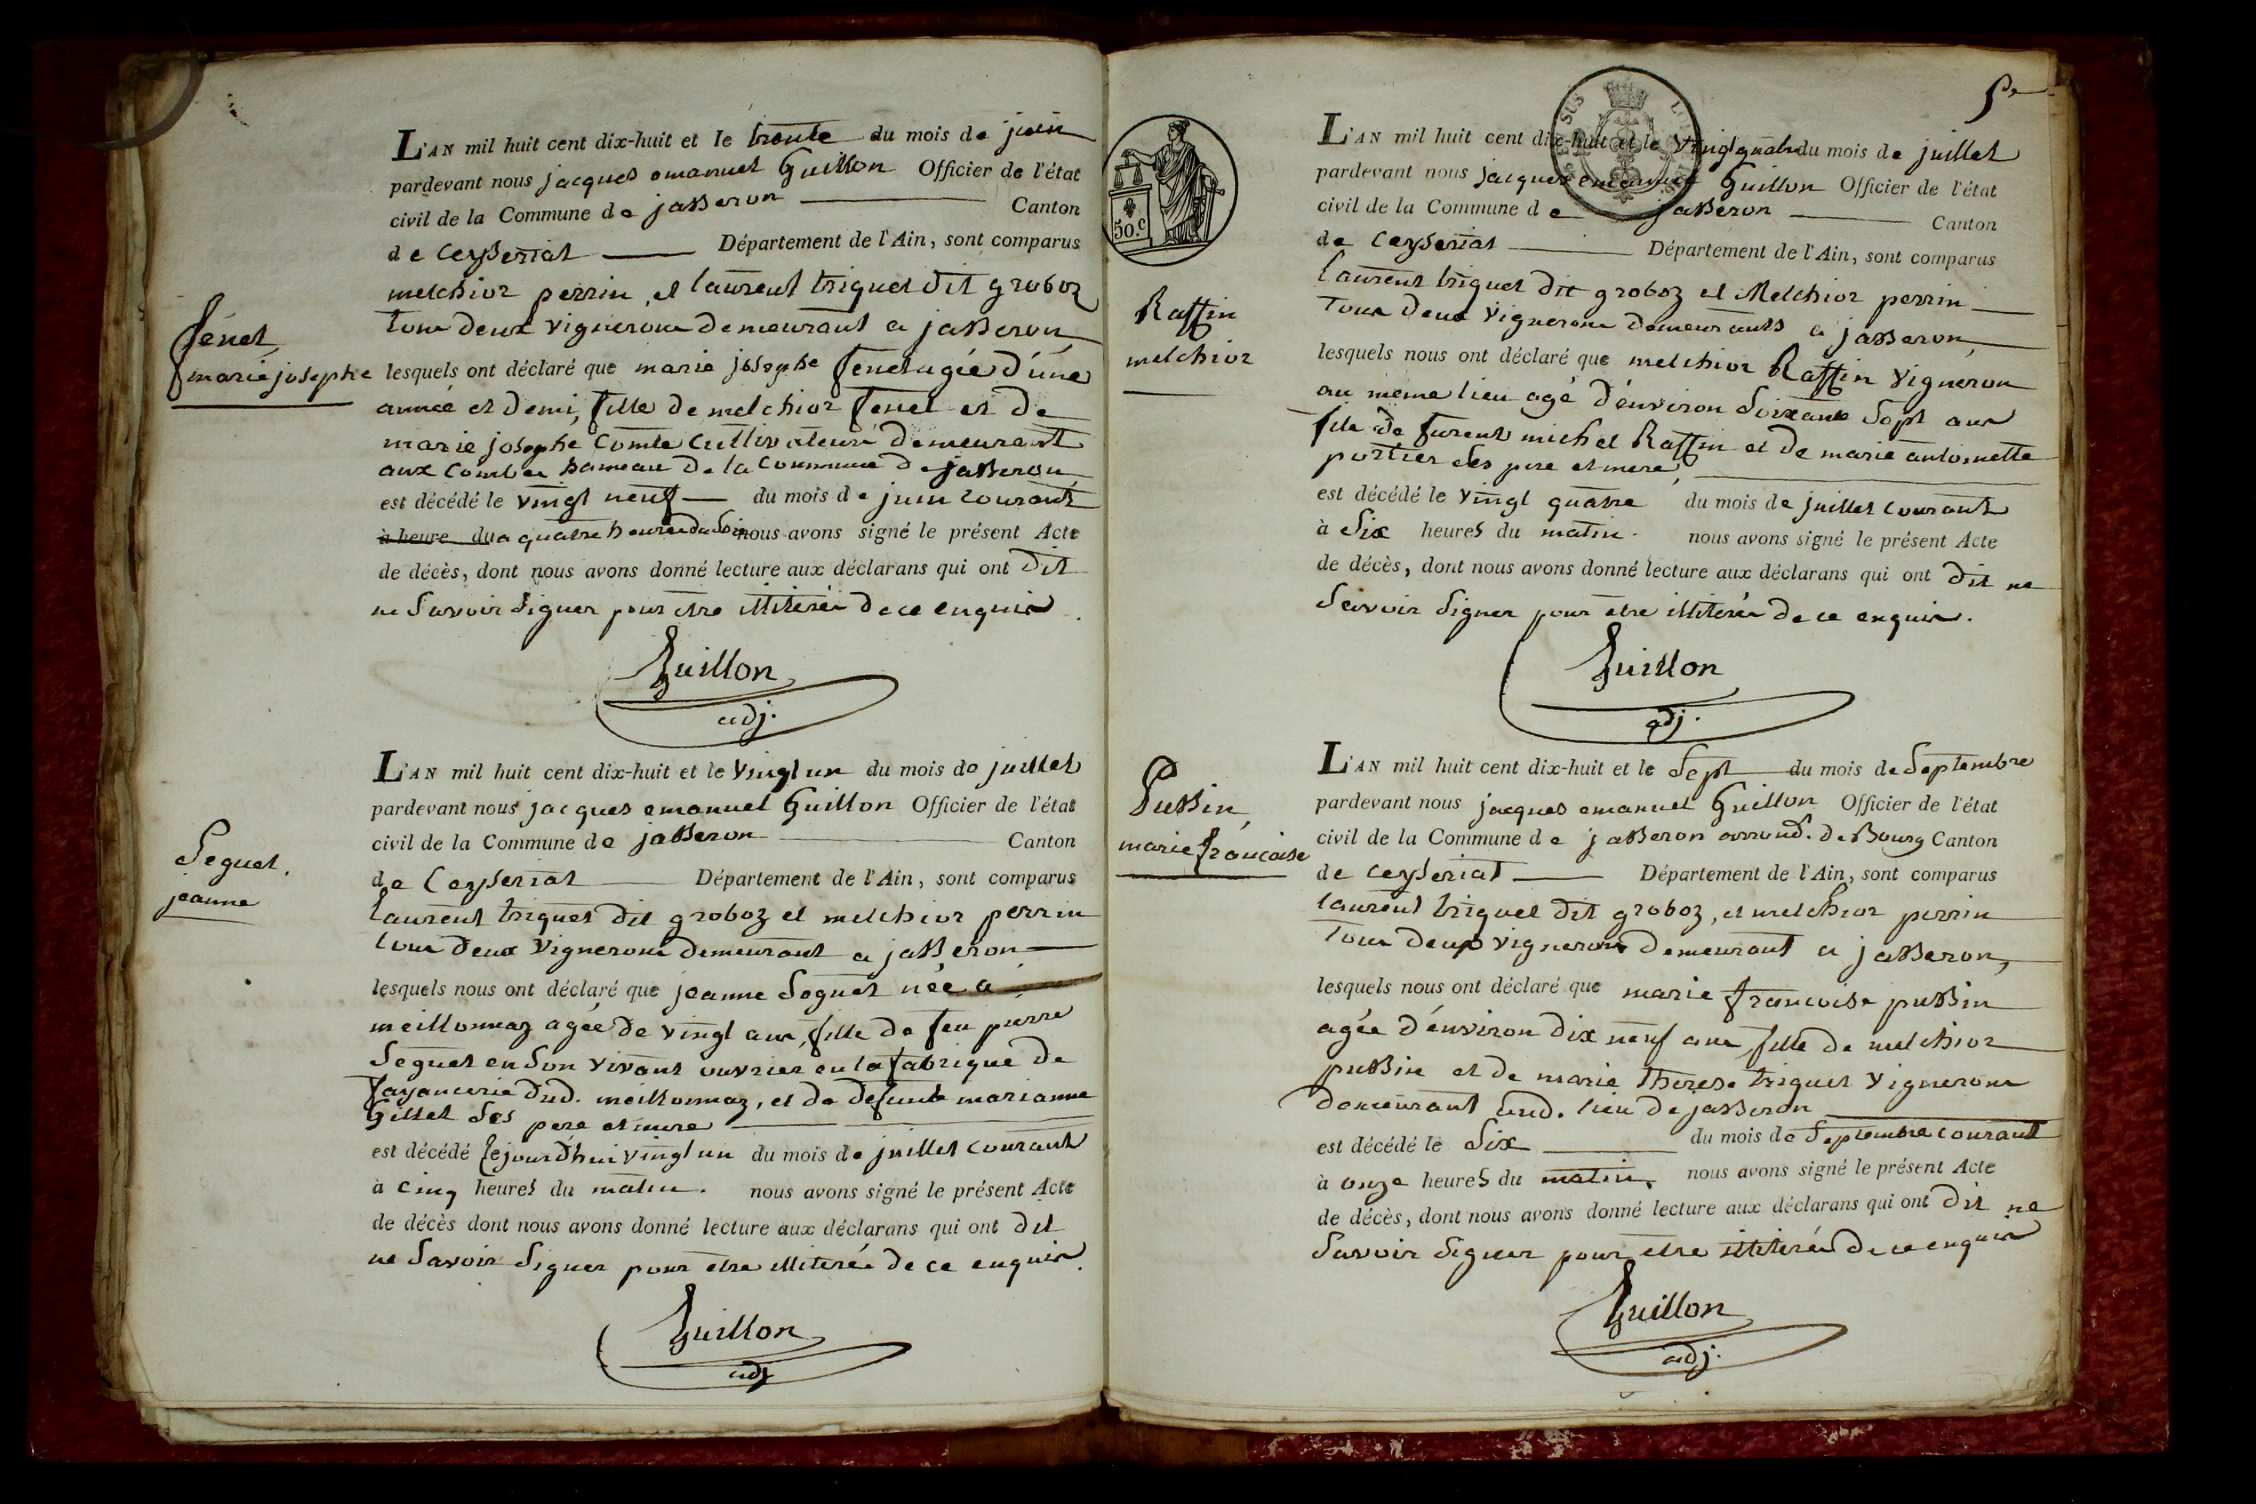 L'AN mil huit cent dix-huit et le trente du mois de juin
pardevant nous jacques emanuel Guillon Officier de l'état
civil de la Commune de jasseron Canton
de Ceyseriat Département de l'Ain, sont comparus
melchior perrin, et laurent triquet dit groboz
tous deux vignerons demeurant a jasseron,
Fenet,
marie josephe
lesquels ont déclaré que marie josephe fenet agée d'une
année et demi, fille de melchior fenet et de
marie josephe Comte Cultivateurs demeurant
aux Combes hameau de la Commune de jasseron,
est décédé le vingt neuf du mois de juin courant
à heure du a quatre heures du Soir nous avons signé le présent Acte
de décès, dont nous avons donné lecture aux déclarans qui ont dit
ne Savoir Signer pour etre illiterés de ce enquis.
Guillon
adj.
L'AN mil huit cent dix-huit et le vingt un du mois de juillet
pardevant nous jacques emanuel Guillon Officier de l'état
civil de la Commune de jasseron Canton
Seguet.
jeanne
de Ceyseriat Département de l'Ain, sont comparus
laurent triquet dit groboz et melchior perrin
tous deux vignerons demeurant a jasseron
lesquels nous ont déclaré que jeanne Seguet née a
meillonnaz agée de vingt ans, fille de feu pierre
Seguet en Son vivant ouvrier en la fabrique de
fayancerie dud. meillonnaz, et de defunte marianne
Gillet Ses pere et mere
est décédé cejourd'hui vingt un du mois de juillet courant
à cinq heures du matin. nous avons signé le présent Acte
de décès dont nous avons donné lecture aux déclarans qui ont dit
ne Savoir Signer pour etre illiterés de ce enquis.
Guillon
adj
5e
50.c
L'AN mil huit cent dix-huit et le vingt quatre du mois de juillet
pardevant nous jacques emanuel Guillon Officier de l'état
civil de la Commune de jasseron Canton
de Ceyseriat Département de l'Ain, sont comparus
laurent triquet dit groboz et Melchior perrin
tous deux vignerons demeurants a jasseron,
Raffin
melchior
lesquels nous ont déclaré que melchior Raffin vigneron
au meme lieu agé d'environ Soixante Sept ans
fils de furent michel Raffin et de marie antoinette
portier Ses pere et mere,
est décédé le vingt quatre du mois de juillet courant
à Six heures du matin. nous avons signé le présent Acte
de décès, dont nous avons donné lecture aux déclarans qui ont dit ne
Savoir Signer pour etre illiterés de ce enquis.
Guillon
adj.
L'AN mil huit cent dix-huit et le Sept du mois de Septembre
pardevant nous jacques emanuel Guillon Officier de l'état
Pussin,
marie francoise
civil de la Commune de jasseron arrond. de Bourg Canton
de Ceyseriat Département de l'Ain, sont comparus
laurent triquet dit groboz, et melchior perrin
tous deux vignerons demeurant a jasseron,
lesquels nous ont déclaré que marie francoise pussin
agée d'environ dix neuf ans, fille de melchior
pussin et de marie therese triquet vignerons
demeurant aud. lieu de jasseron
est décédé le Six du mois de Septembre courant
à onze heures du matin, nous avons signé le présent Acte
de décès, dont nous avons donné lecture aux déclarans qui ont dit ne
Savoir Signer pour etre illiterés de ce enquis
Guillon
adj.